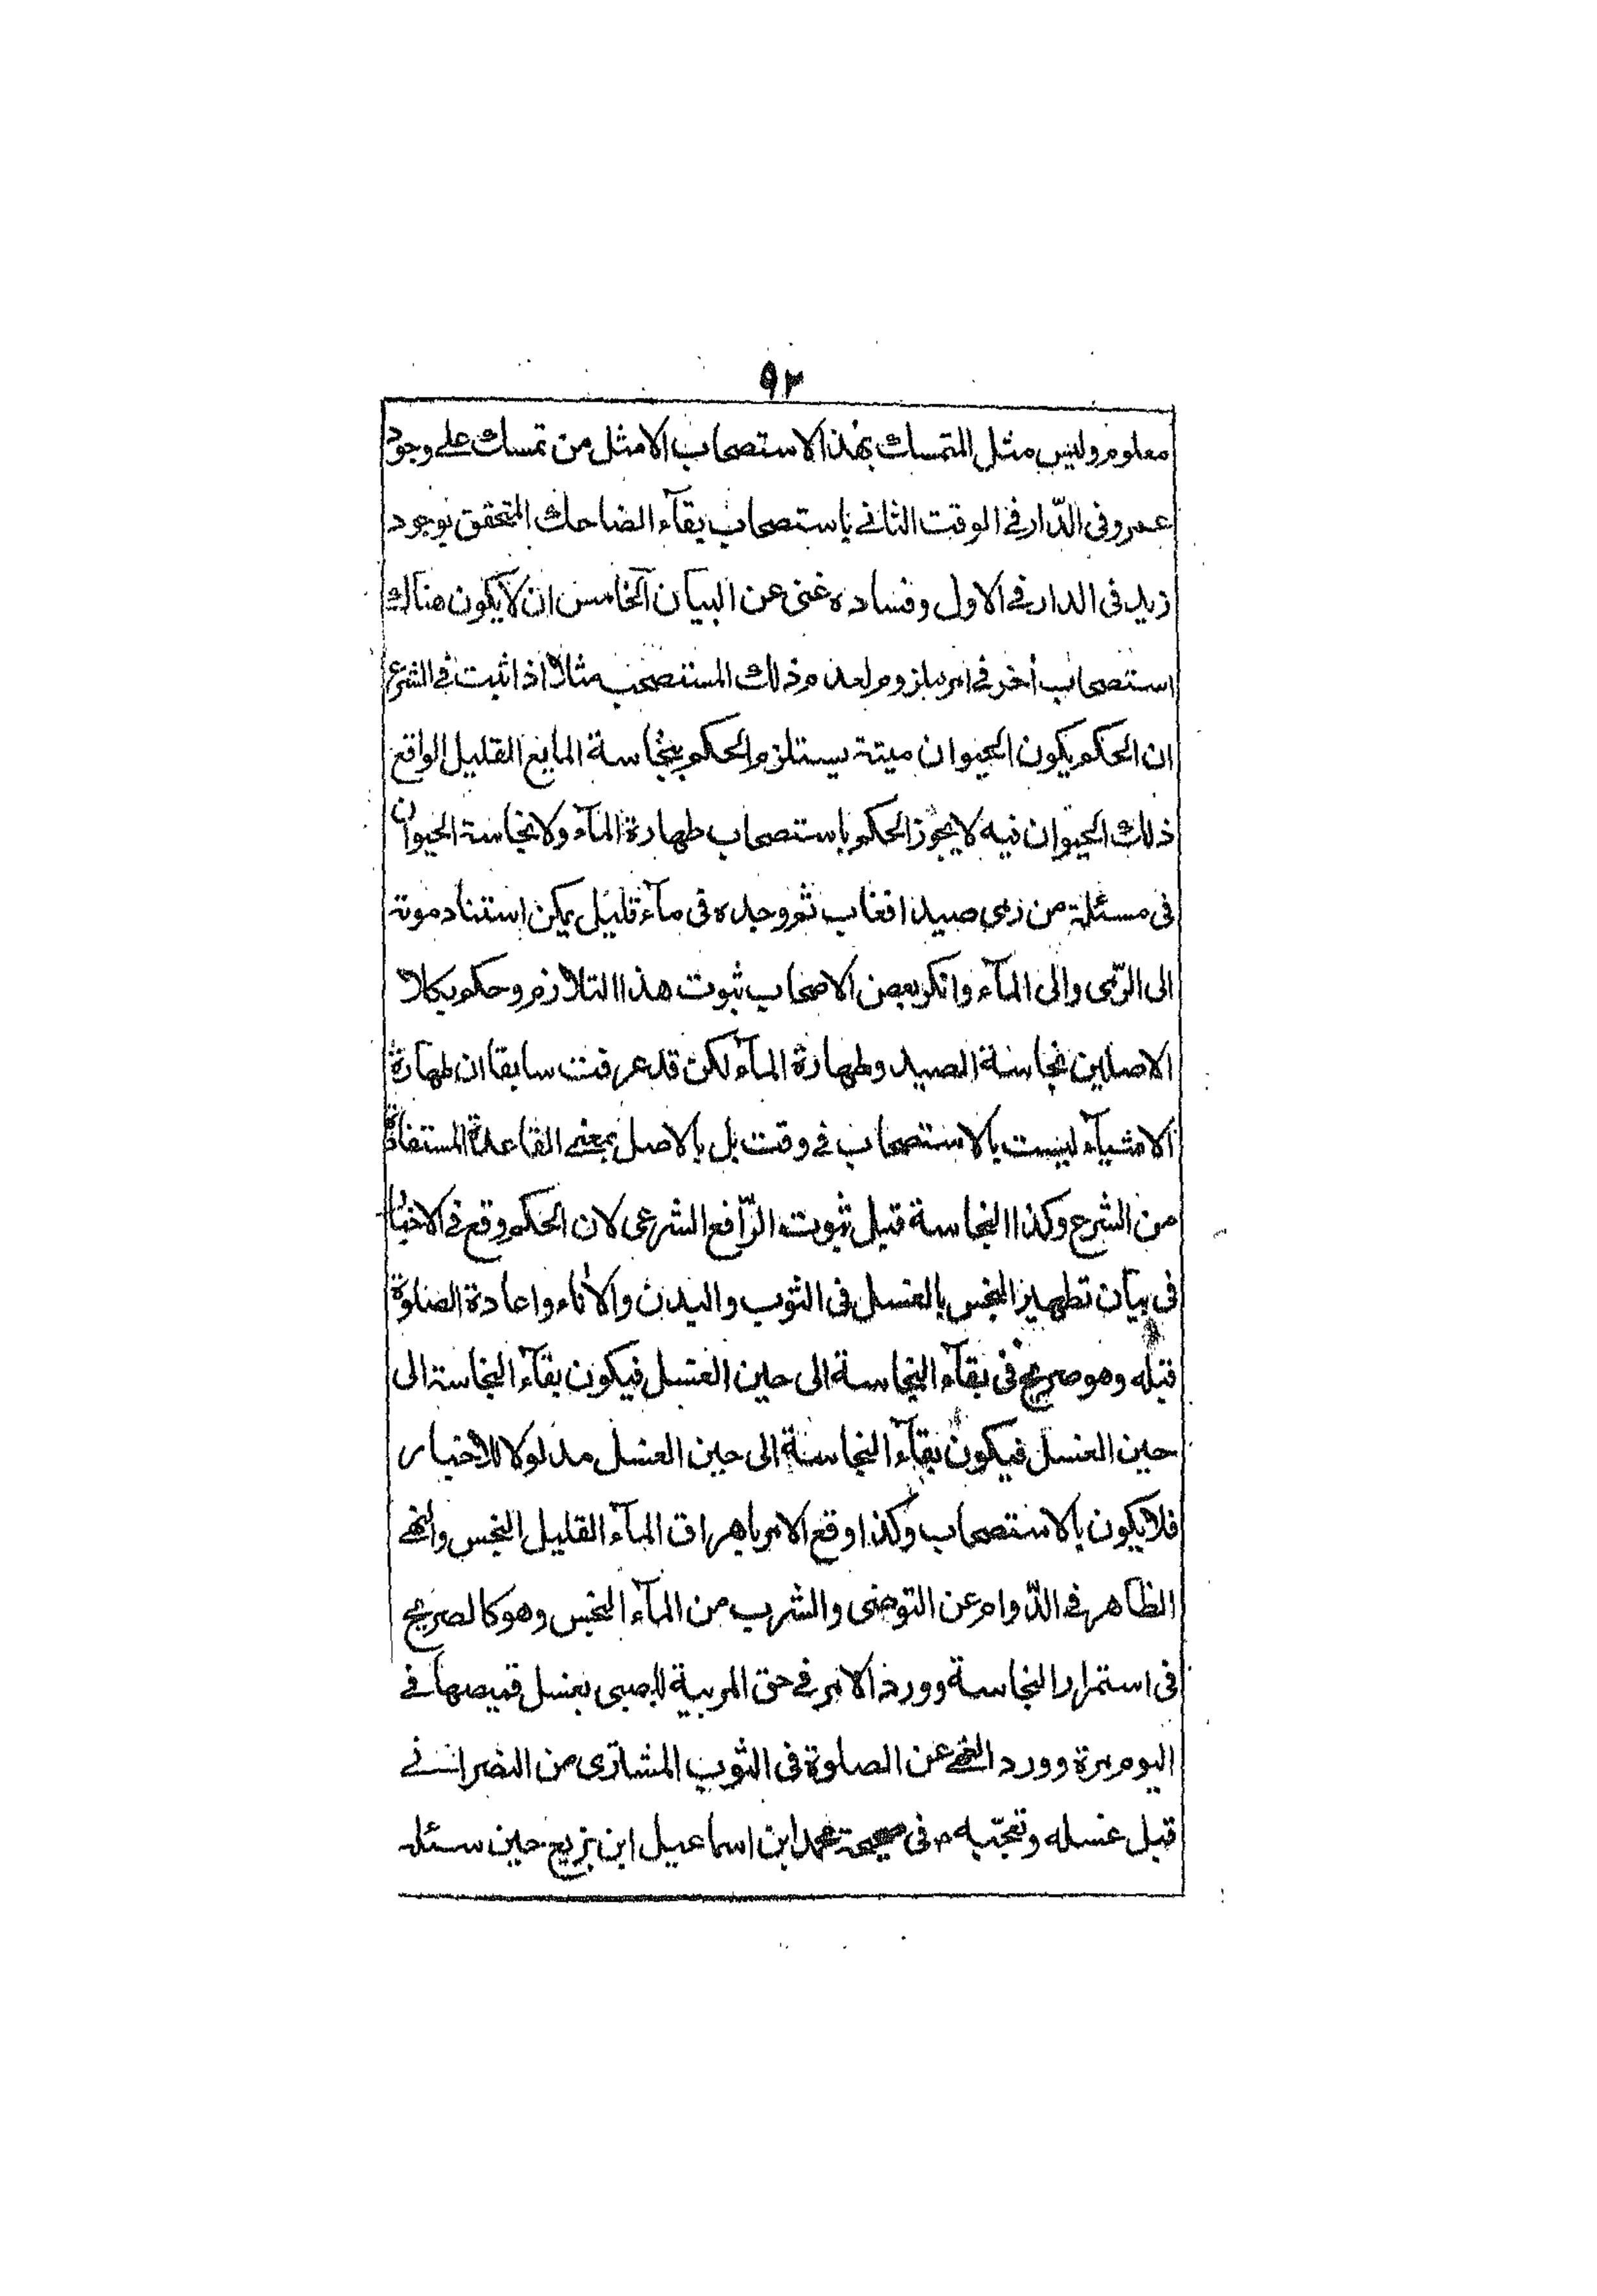 ٩٢
معلوم وليس مثل التمسك بهذا الاستصحاب الا مثل من تمسك على وجود
عمرو فى الدّار فى الوقت الثانى باستصحاب بقآء الضاحك المتحقق بوجود
زيد فى الدار فى الاول وفساده غنى عن البيان الخامس ان لا يكون هناك
استصحاب أخر فى امر ملزوم لعدم ذلك المستصحب مثلا اذا ثبت فى الشرع
ان الحكم بكون الحيوان ميتة يستلزم الحكم بنجاسة المايع القليل الواقع
ذلك الحيوان فيه لا يجوز الحكم باستصحاب طهارة المآء ولا نجاسة الحيوان
فى مسئلة من رمى صيدا فغاب ثم وجده فى مآء قليل يمكن استناد موته
الى الرّمى والى المآء وانكر بعض الاصحاب ثبوت هذا التلازم وحكم بكلا
الاصلين نجاسة الصيد وطهارة المآء لكن قد عرفت سابقا ان طهارة
الاشيآء ليست بالاستصحاب فى وقت بل بالاصل بمعنى القاعدة المستفادة
من الشرع وكذا النجاسة قبل ثبوت الرّافع الشرعى لان الحكم وقع فى الاخبار
فى بيان تطهير النجس بالغسل فى الثوب والبدن والاناء واعادة الصلوة
قبله وهو صريح فى بقآء النجاسة الى حين الغسل فيكون بقآء النجاسة الى
حين الغسل فيكون بقآء النجاسة الى حين الغسل مدلولا للاخبار
فلا يكون بالاستصحاب وكذا وقع الامر باهراق المآء القليل النجس والنهى
الظاهر فى الدّوام عن التوضى والشرب من المآء النجس وهو كالصريح
فى استمرار النجاسة وورد الامر فى حق المربية للصبى بغسل قميصها فى
اليوم مرة وورد النهى عن الصلوة فى الثوب المشترى من النصرانى
قبل غسله وتعجّبه م فى صحيحة محمد ابن اسماعيل ابن بزيع حين سئله